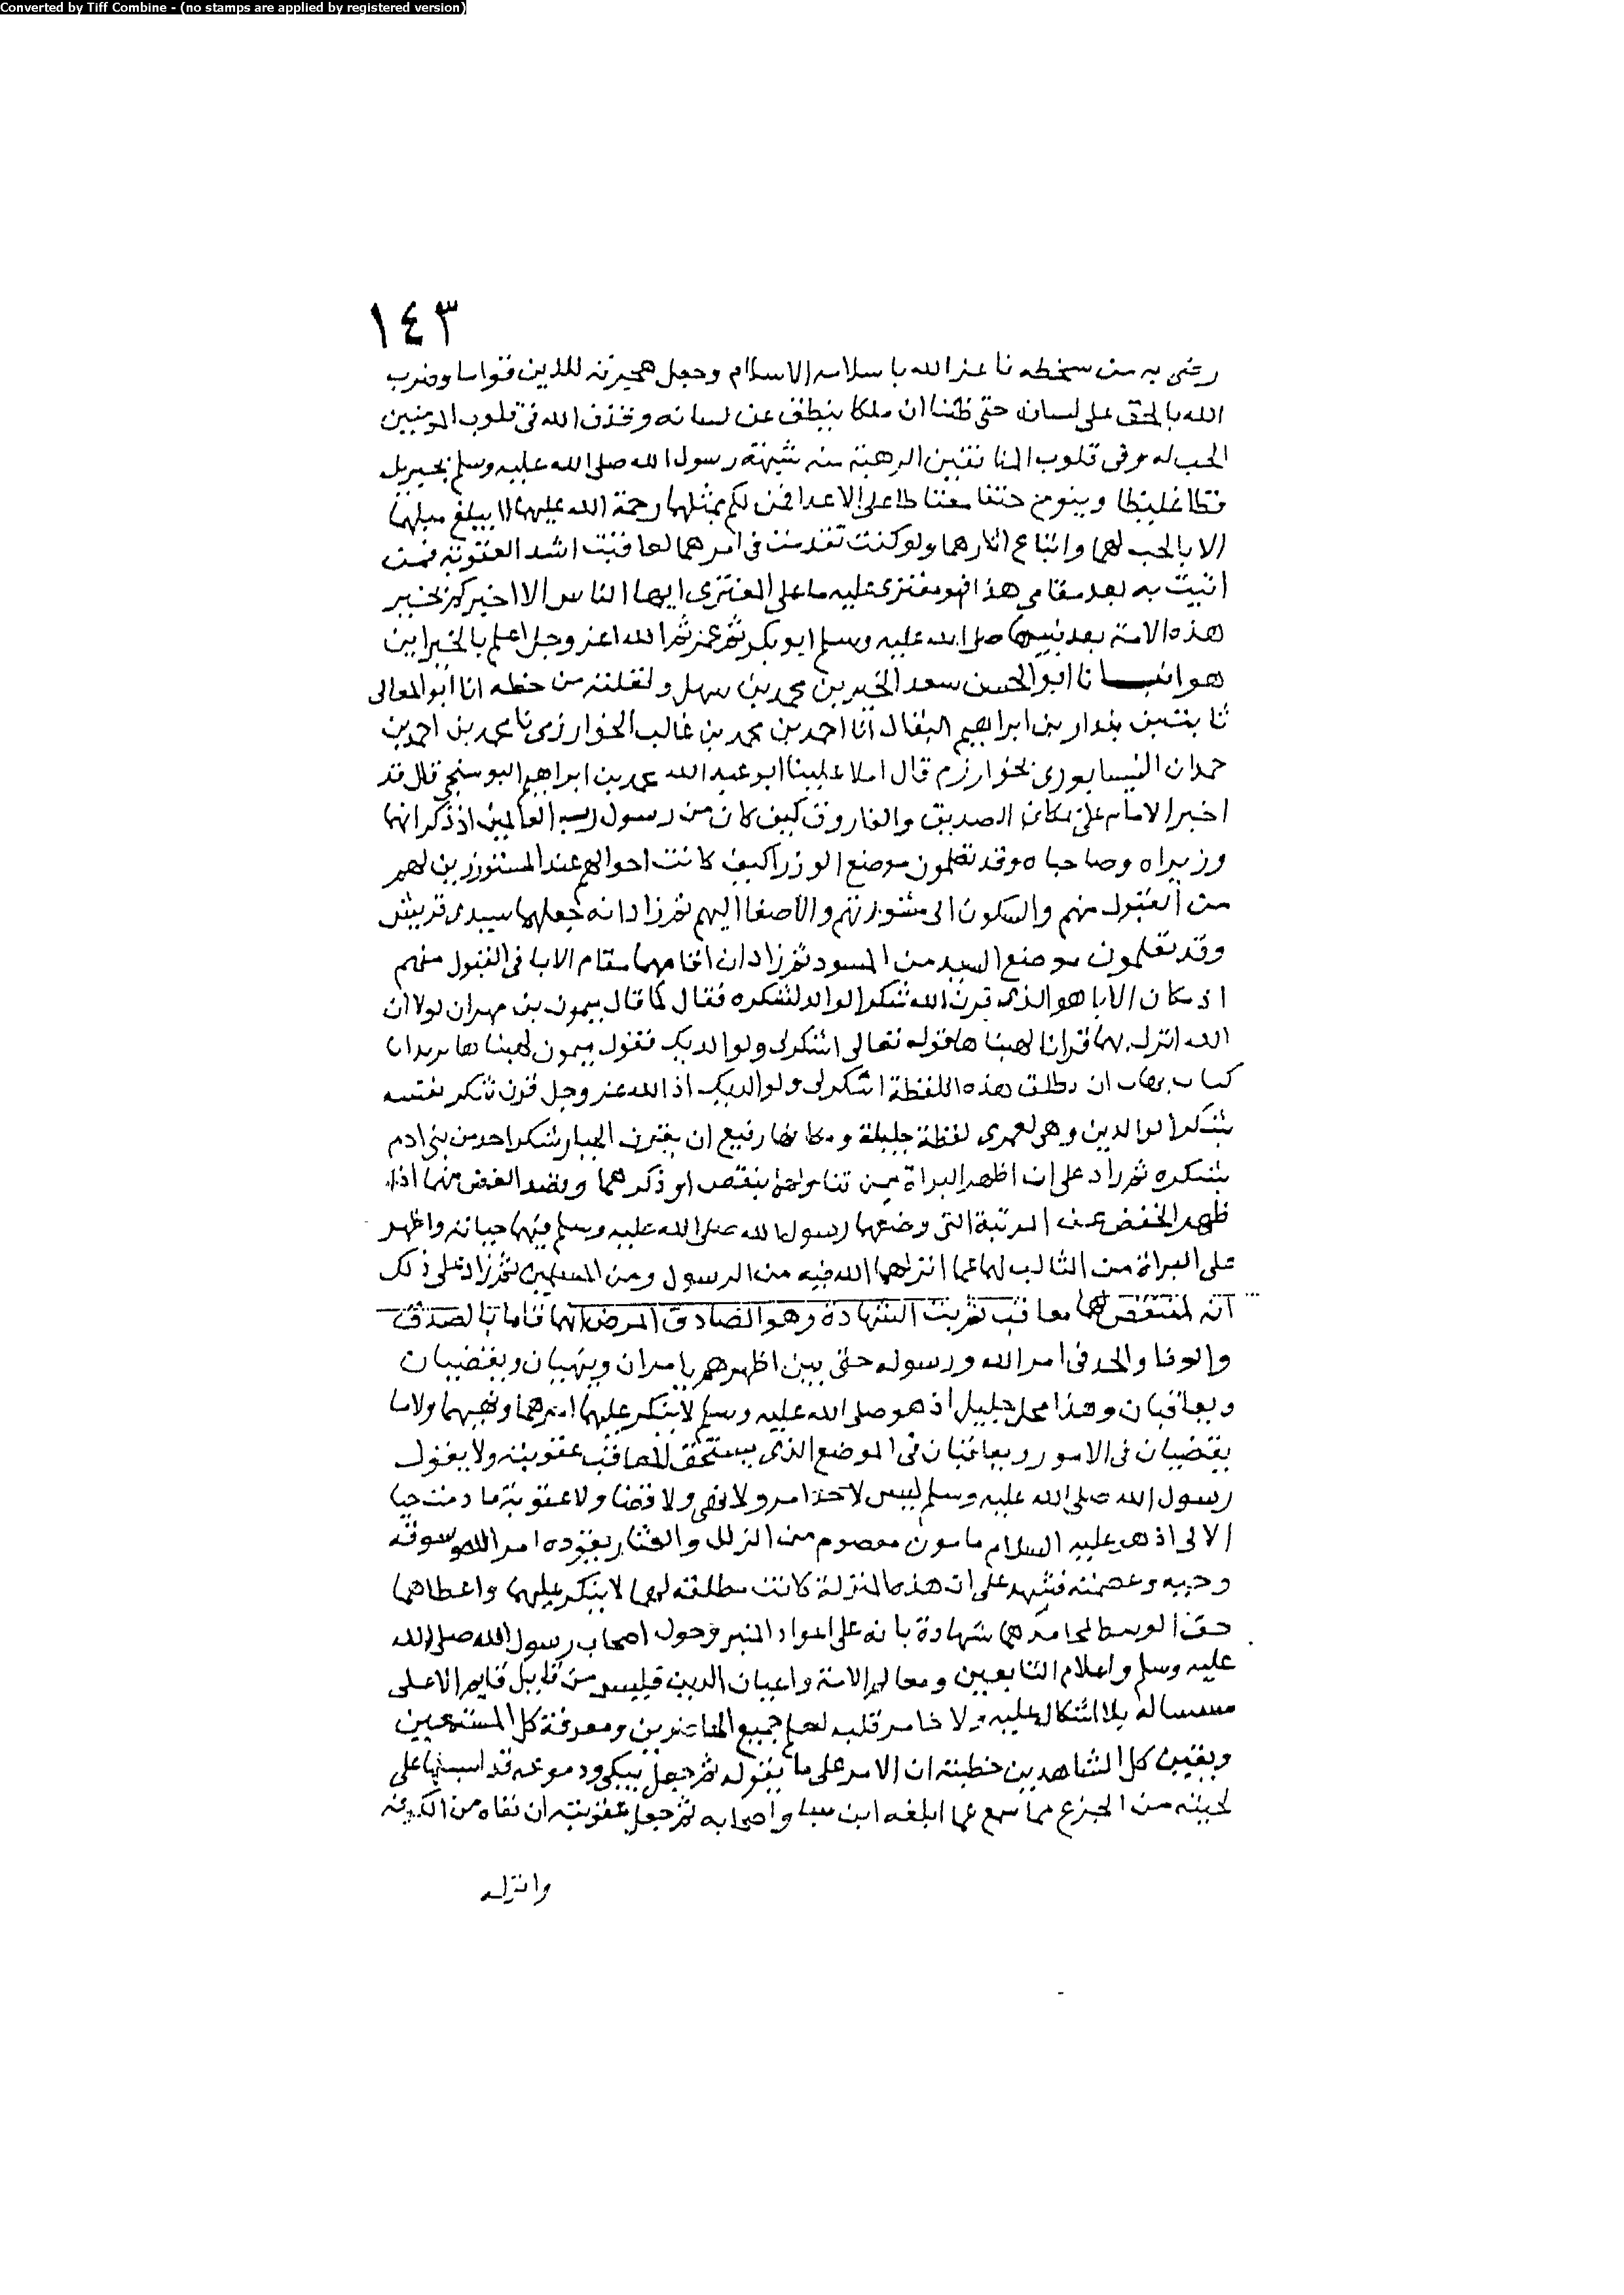 Converted by Tiff Combine - (no stamps are applied by registered version)
١٤٣
رضى به من سخطه فاعز الله باسلامه الاسلام وجعل هجرته للدين قواما وضرب
الله بالحق على لسانه حتى ظننا ان ملكا ينطق عن لسانه وقذف الله فى قلوب المومنين
الحب له وفى قلوب المنافقين الرهبة منه شبهه رسول الله صلى الله عليه وسلم بجبريل
فظا غليظا وبنوح حنقا مغتاظا على الاعدا فمن لكم بمثلهما رحمة الله عليهما لا يبلغ مبلغهما
الا بالحب لهما واتباع اثارهما ولو كنت تقدمت فى امرهما لعاقبت اشد العقوبة فمن
اتيت به بعد مقامى هذا فهو مفترى عليه ما على المفترى ايها الناس الا اخبركم بخير
هذه الامة بعد نبيها صلى الله عليه وسلم ابو بكر ثم عمر ثم الله عز وجل اعلم بالخير اين
هو انبانا ابو الحسن سعد الخير بن محمد بن سهل ونقلته من خطه انا ابو المعالى
ثابت بن بندار بن ابراهيم البقال انا احمد بن محمد بن غالب الخوارزمى نا محمد بن احمد بن
حمدان النيسابورى بخوارزم قال املا علينا ابو عبد الله محمد بن ابراهيم البوسنجى قال قد
اخبر الامام على بمكان الصديق والفاروق كيف كان من رسول رب العالمين اذ ذكر انهما
وزيراه وصاحباه وقد تعلمون موضع الوزرا كيف كانت احوالهم عند المستوزرين لهم
من القبول منهم والسكون الى مشورتهم والاصغا اليهم ثم زاد انه جعلهما سيدى قريش
وقد تعلمون موضع السيد من المسود ثم زاد ان اقامهما مقام الابا فى القبول منهم
اذ كان الابا هو الذى قرن الله شكر الوالد لشكره فقال كما قال ميمون بن مهران لولا ان
الله انزل بهما قرانا لهبناها قوله تعالى اشكر لى ولوالديك فقول ميمون لهبناها يريد انا
كنا نهاب ان نطلق هذه اللفظة اشكر لى ولوالديك اذ الله عز وجل قرن شكر نفسه
بشكر الوالدين وهى لعمرى لفظة جليلة ومكانها رفيع ان يقرن الجبار شكر احد من بنى ادم
بشكره ثم زاد على ان اظهر البراة ممن تناولهما بنقص او ذكرهما وقصد الغض منهما اذا
ظهر الخفض عن المرتبة التى وضعها رسول الله صلى الله عليه وسلم فيها حياته واظهر
على البراة من الثالب لهما عما انزلهما الله فيه من الرسول ومن المسلمين ثم زاد على ذلك
انه لمنتقص لهما معاقب ثم بت الشهادة وهو الصادق المرضى انهما قاما بالصدق
والوفا والجد فى امر الله ورسوله حتى بين اظهرهم يامران وينهيان ويقضيان
ويعاقبان وهذا محل جليل اذ هو صلى الله عليه وسلم لا ينكر عليهما امرهما ونهيهما ولا ما
يقضيان فى الامور ويعاقبان فى الموضع الذى يستحق المعاقب عقوبته ولا يقول
رسول الله صلى الله عليه وسلم ليس لاحد امر ولا نهى ولا قضا ولا عقوبة ما دمت حيا
الا لى اذ هو عليه السلام مامون معصوم من الزلل والعثار يقوده امر الله وسوقه
وحيه وعصمته فشهد على ان هذه المنزلة كانت مطلقة لهما لا ينكر عليهما واعطاهما
حق البسط لمحامدهما شهادة بانه على اعواد المنبر وحوله اصحاب رسول الله صلى الله
عليه وسلم واعلام التابعين ومعالم الامة واعيان الدين فليس من قايل قايم الا على
بلا اشكال عليه ولا خامر قلبه لعلم جميع الحاضرين ومعرفة كل المستمعين
ويقين كل الشاهدين خطبته ان الامر على ما يقوله ثم جعل يبكى ودموعه قد اسبلها على
لحيته من الجزع مما سمع عما ابلغه ابن سبا واصحابه ثم جعل عقوبته ان نفاه من الكوفة
وانزله